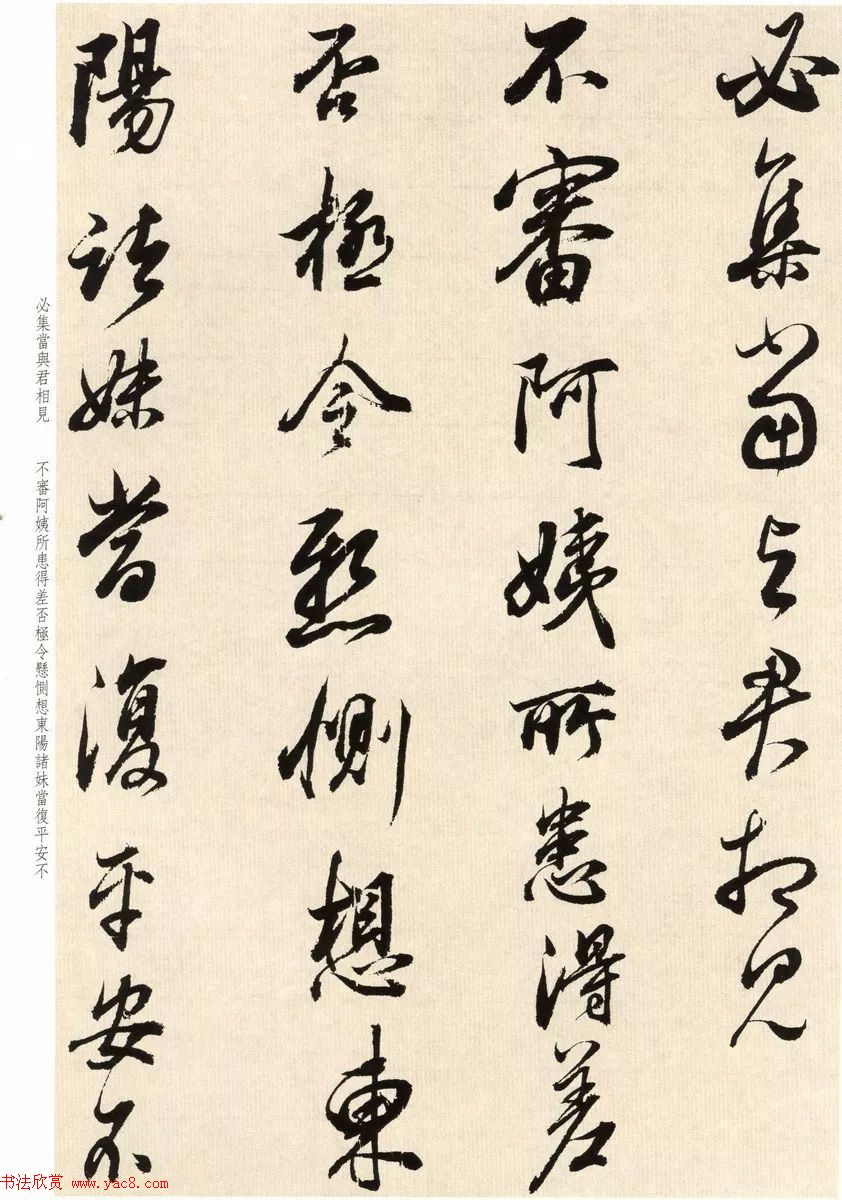 必集當與君相見
不審阿姨所患得差
否極令懸惻想東
陽諸妹當復平安不
必集當與君相見 不審阿姨所患得差否極令懸惻想東陽諸妹當復平安不
书法欣赏 www.yac8.com